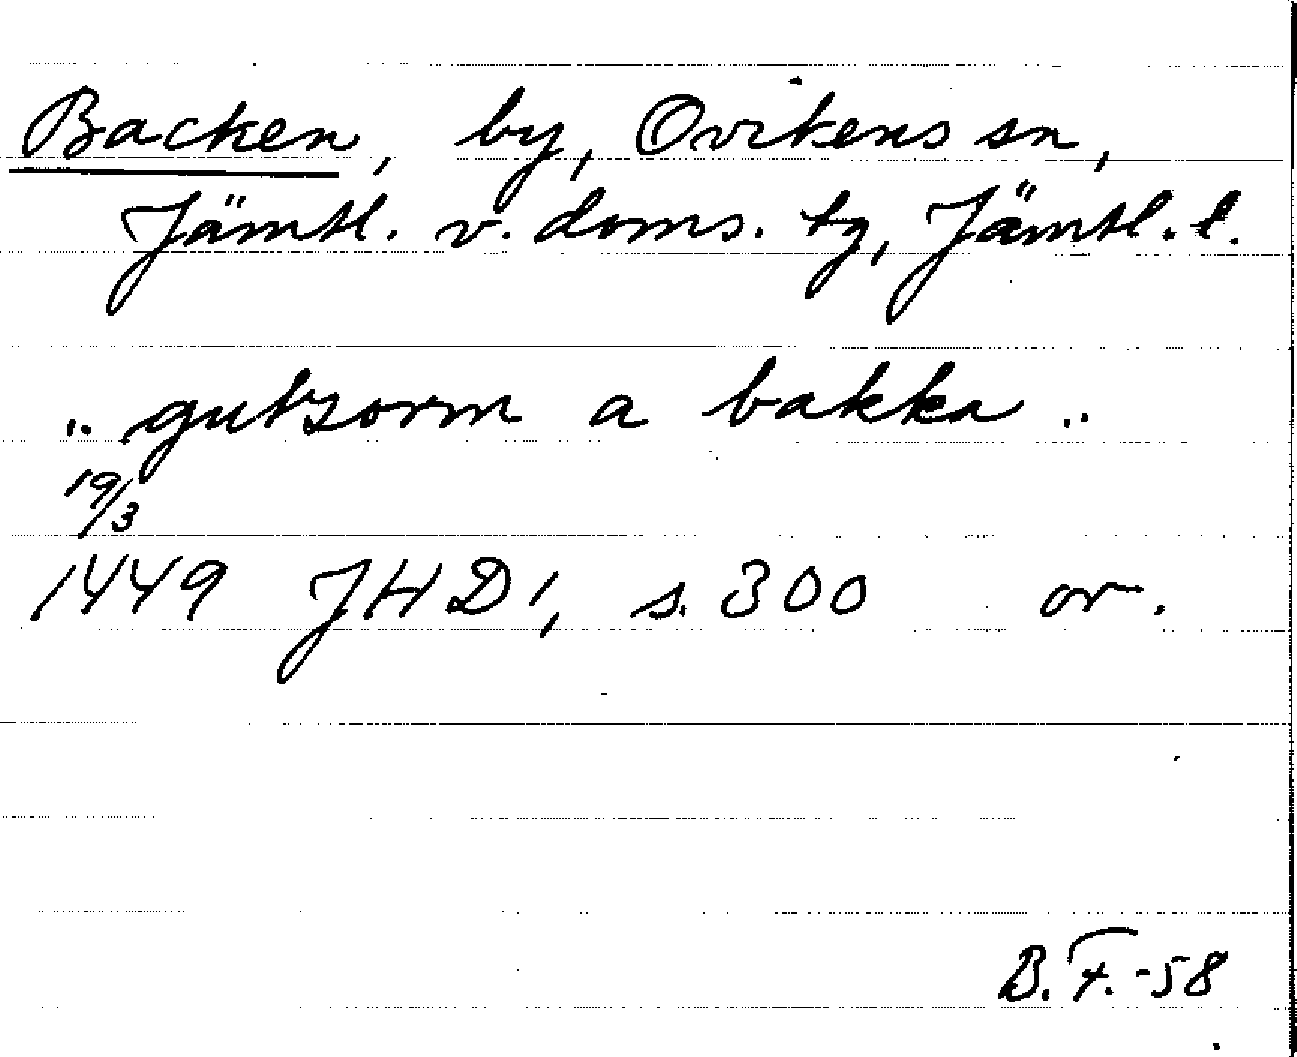 Backen, by, Ovikens sn,
Jämtl. v. doms. tg, Jämtl. l.
.. gutzorm a bakka ..
19/3
1449 JHD 1, s. 300 or.
B.F. -58